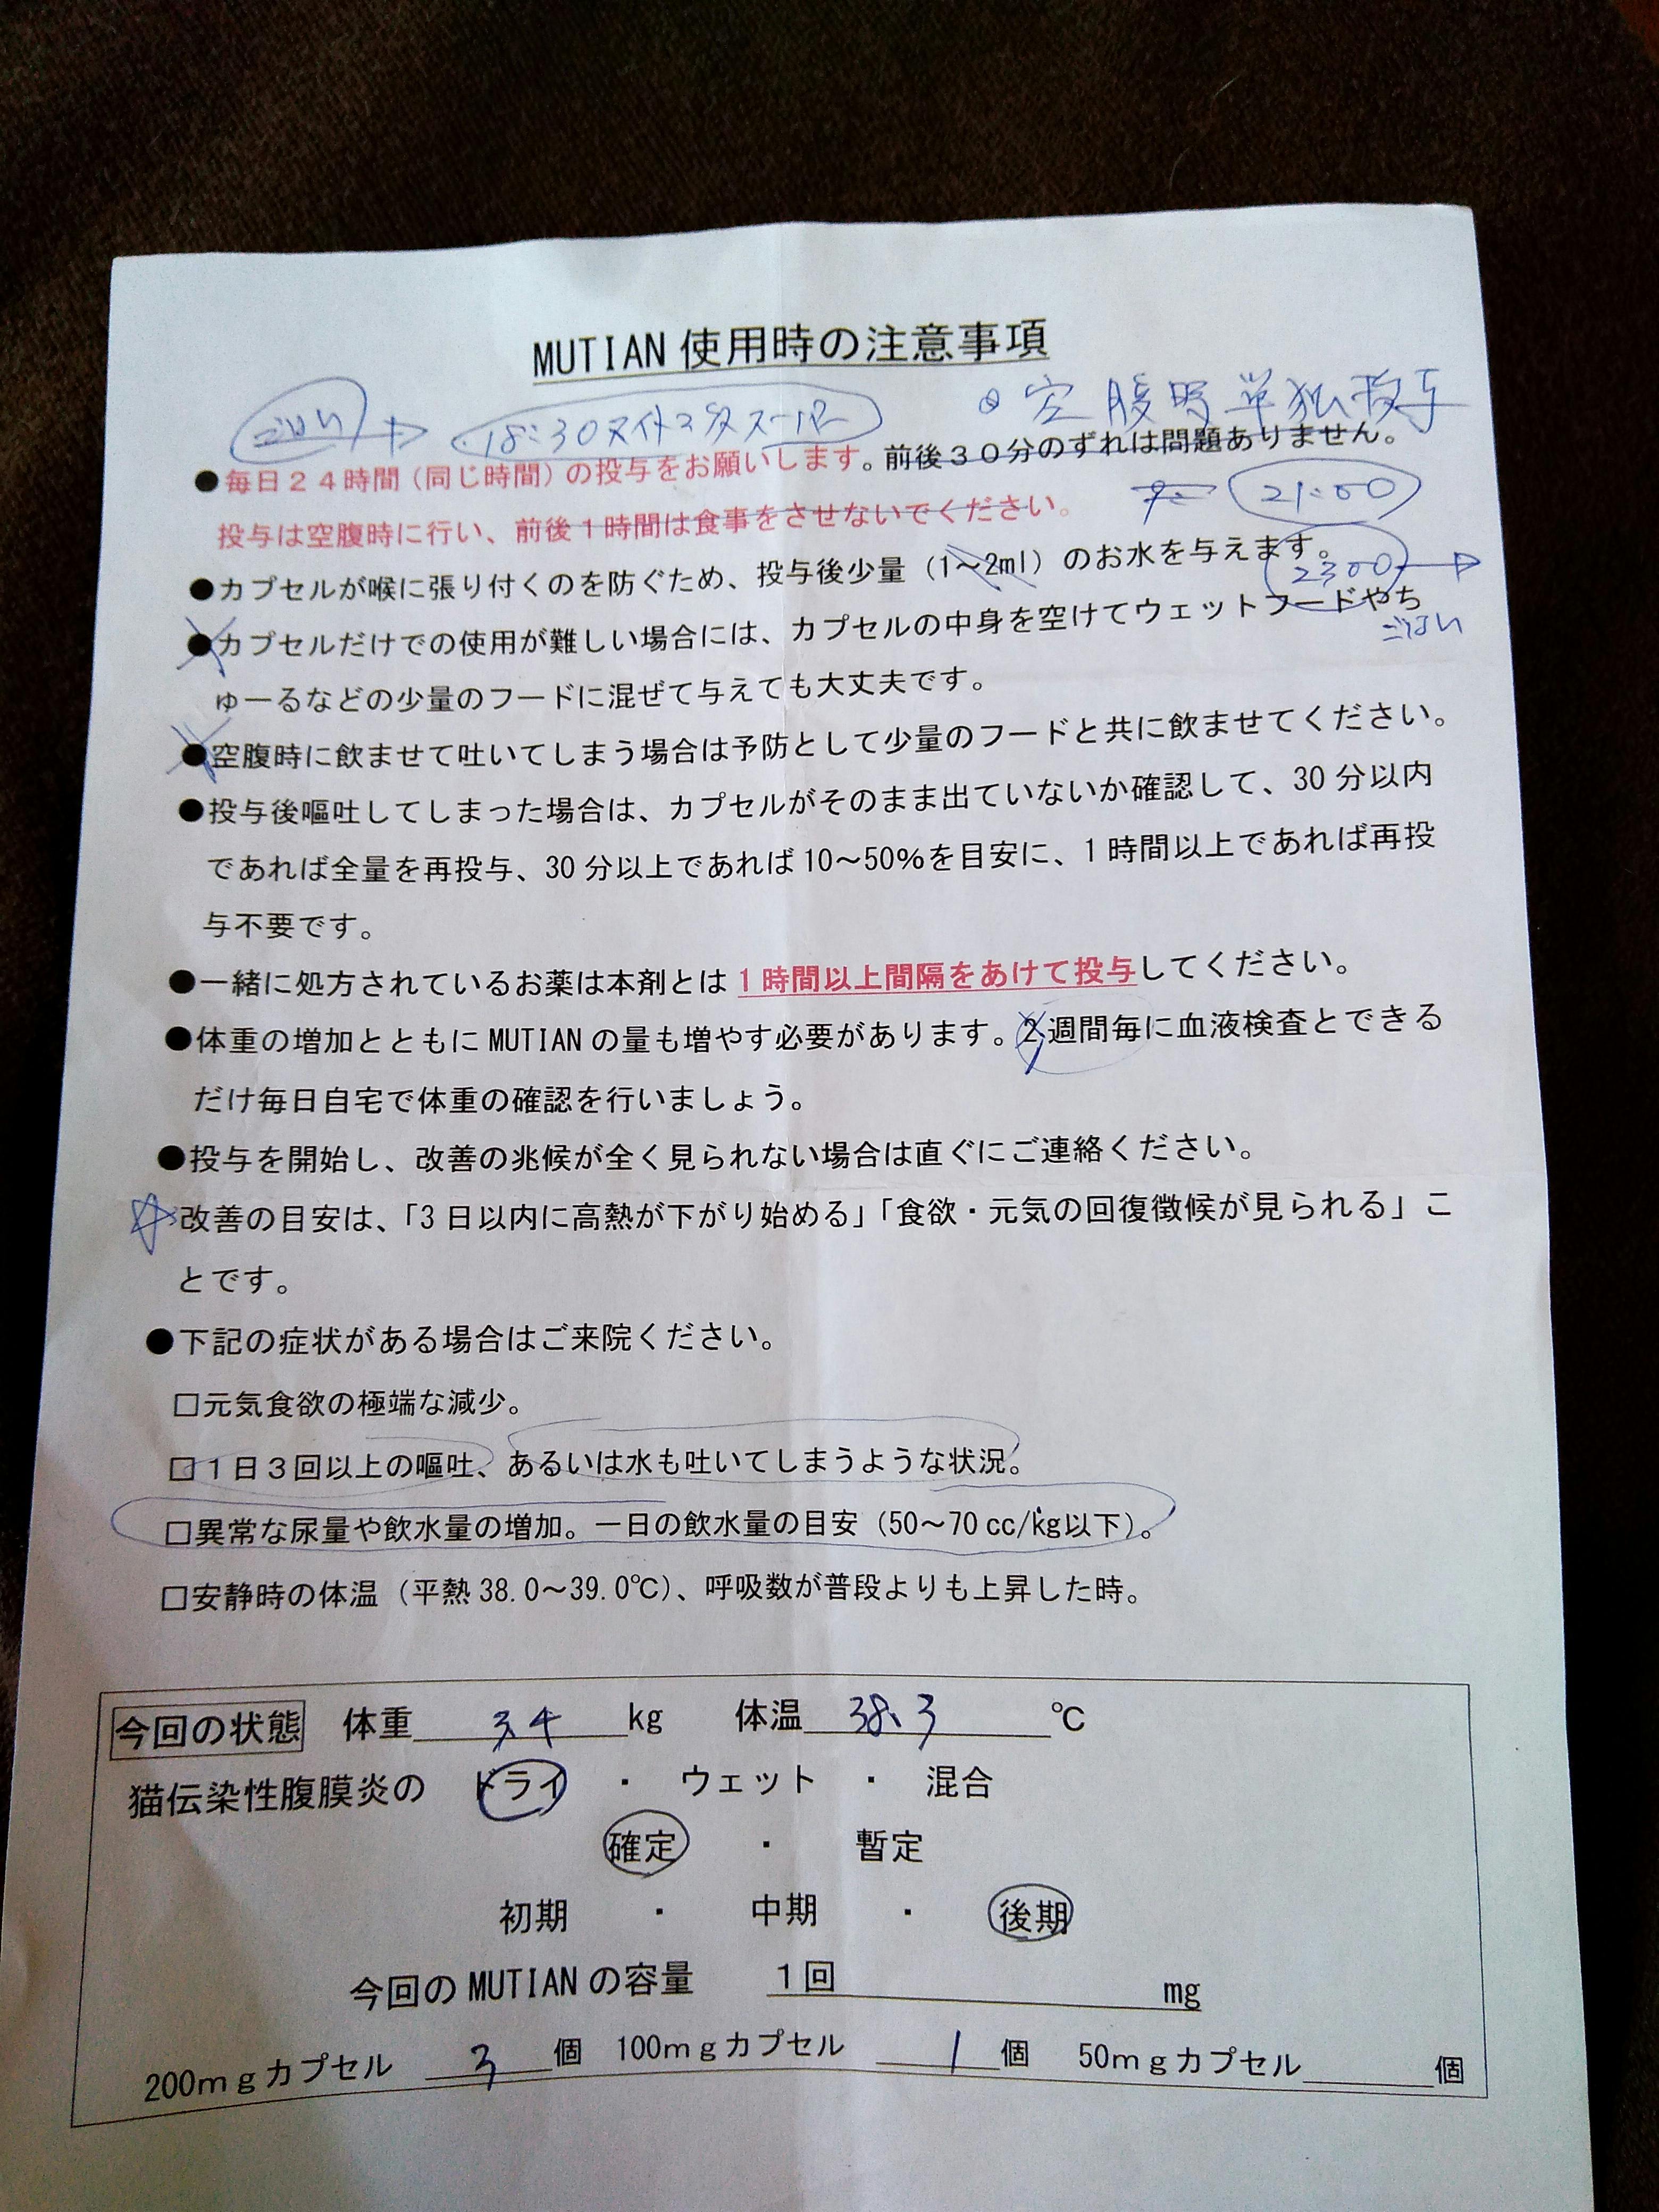 MUTIAN 使用時の注意事項
ごはん → 18:30
◎空腹時単独投与
●毎日24時間(同じ時間)の投与をお願いします。前後30分のずれは問題ありません。
21:00
投与は空腹時に行い、前後1時間は食事をさせないでください。
●カプセルが喉に張り付くのを防ぐため、投与後少量(1～2ml)のお水を与えます。
2300 →
ごはん
●カプセルだけでの使用が難しい場合には、カプセルの中身を空けてウェットフードやち
ゅーるなどの少量のフードに混ぜて与えても大丈夫です。
●空腹時に飲ませて吐いてしまう場合は予防として少量のフードと共に飲ませてください。
●投与後嘔吐してしまった場合は、カプセルがそのまま出ていないか確認して、30分以内
であれば全量を再投与、30分以上であれば10～50%を目安に、1時間以上であれば再投
与不要です。
●一緒に処方されているお薬は本剤とは1時間以上間隔をあけて投与してください。
●体重の増加とともにMUTIANの量も増やす必要があります。2週間毎に血液検査とできる
だけ毎日自宅で体重の確認を行いましょう。
●投与を開始し、改善の兆候が全く見られない場合は直ぐにご連絡ください。
☆改善の目安は、「3日以内に高熱が下がり始める」「食欲・元気の回復徴候が見られる」こ
とです。
●下記の症状がある場合はご来院ください。
□元気食欲の極端な減少。
□1日3回以上の嘔吐、あるいは水も吐いてしまうような状況。
□異常な尿量や飲水量の増加。一日の飲水量の目安(50～70cc/kg以下)。
□安静時の体温(平熱38.0～39.0℃)、呼吸数が普段よりも上昇した時。
今回の状態 体重 3.4 kg 体温 38.3 ℃
猫伝染性腹膜炎の ドライ ・ ウェット ・ 混合
確定 ・ 暫定
初期 ・ 中期 ・ 後期
今回のMUTIANの容量 1回 mg
200mgカプセル 3 個 100mgカプセル 1 個 50mgカプセル 個